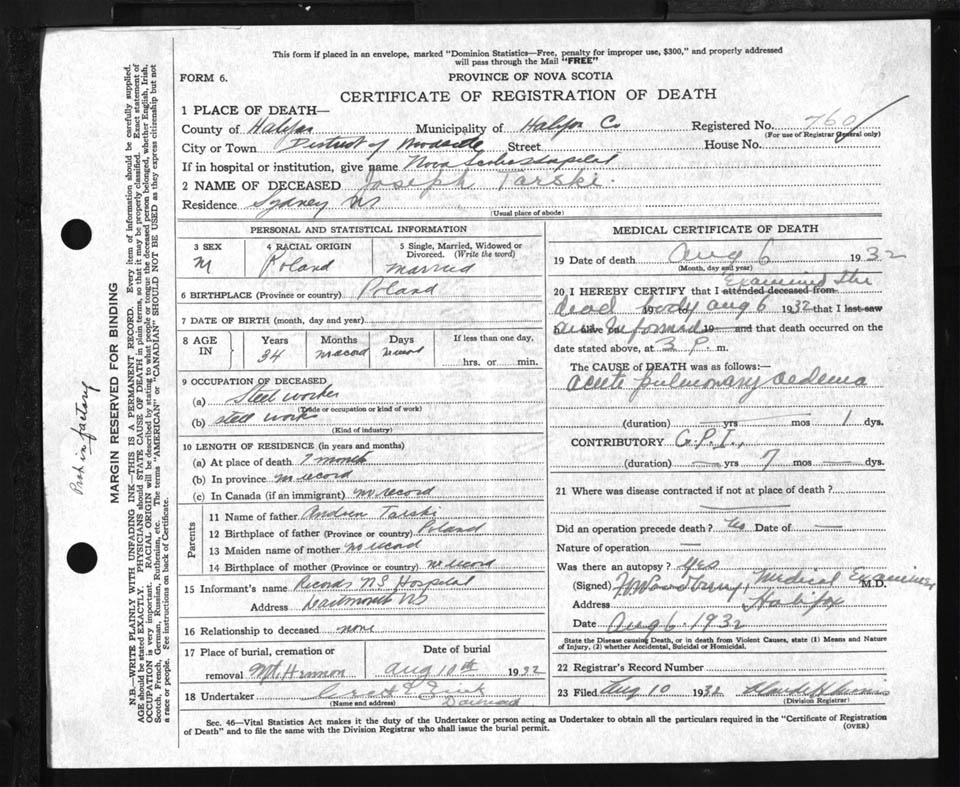 This form if placed in an envelope, marked "Dominion Statistics—Free, penalty for improper use, $300," and properly addressed
will pass through the Mail "FREE"
FORM 6.
PROVINCE OF NOVA SCOTIA
CERTIFICATE OF REGISTRATION OF DEATH
1 PLACE OF DEATH—
County of Halifax Municipality of Halifax Co Registered No. 760
(For use of Registrar General only)
City or Town District of Woodside Street House No.
If in hospital or institution, give name Nova Scotia Hospital
2 NAME OF DECEASED Joseph Tarski.
Residence Sydney NS
(Usual place of abode)
PERSONAL AND STATISTICAL INFORMATION
3 SEX M
4 RACIAL ORIGIN Poland
5 Single, Married, Widowed or
Divorced. (Write the word)
married
6 BIRTHPLACE (Province or country) Poland
7 DATE OF BIRTH (month, day and year)
8 AGE IN
Years Months Days If less than one day,
34 no record no record hrs. or min.
9 OCCUPATION OF DECEASED
(a) Steel worker
(Trade or occupation or kind of work)
(b) steel work
(Kind of industry)
10 LENGTH OF RESIDENCE (in years and months)
(a) At place of death 7 month
(b) In province no record
(c) In Canada (if an immigrant) no record
Parents
11 Name of father Andrew Tarski
12 Birthplace of father (Province or country) Poland
13 Maiden name of mother no record
14 Birthplace of mother (Province or country) no record
15 Informant's name Records NS Hospital
Address Dartmouth NS
16 Relationship to deceased none
17 Place of burial, cremation or
removal Mt. Hermon
Date of burial
Aug 10th 1932
18 Undertaker
(Name and address)
MEDICAL CERTIFICATE OF DEATH
19 Date of death Aug 6 1932
(Month, day and year)
Examined the
20 I HEREBY CERTIFY that I attended deceased from
dead body Aug 6 1932 that I last saw
h alive on informed 19 and that death occurred on
date stated above, at 3 P. m.
The CAUSE of DEATH was as follows:
acute pulmonary oedema
(duration) yrs mos 1 dys.
CONTRIBUTORY G.P.I.,
(duration) — yrs 7 mos — dys.
21 Where was disease contracted if not at place of death?
Did an operation precede death? No Date of —
Nature of operation —
Was there an autopsy? Yes
(Signed) Medical Examiner M.D.
Address Halifax
Date Aug 6 1932
State the Disease causing Death, or in death from Violent Causes, state (1) Means and Nature
of Injury, (2) whether Accidental, Suicidal or Homicidal.
22 Registrar's Record Number
23 Filed Aug 10 1932
(Division Registrar)
Sec. 46—Vital Statistics Act makes it the duty of the Undertaker or person acting as Undertaker to obtain all the particulars required in the "Certificate of Registration
of Death" and to file the same with the Division Registrar who shall issue the burial permit.
(OVER)
MARGIN RESERVED FOR BINDING
N.B.—WRITE PLAINLY WITH UNFADING INK—THIS IS A PERMANENT RECORD. Every item of information should be carefully supplied.
AGE should be stated EXACTLY. PHYSICIANS should STATE CAUSE OF DEATH in plain terms, so that it may be properly classified. Exact statement of
OCCUPATION is very important. RACIAL ORIGIN will be described by stating to what people or tongue the deceased person belonged, whether English, Irish,
Scotch, French, German, Russian, Ruthenian, etc. The terms "AMERICAN" or "CANADIAN" SHOULD NOT BE USED as they express citizenship but not
a race or people. See instructions on back of Certificate.
in factory